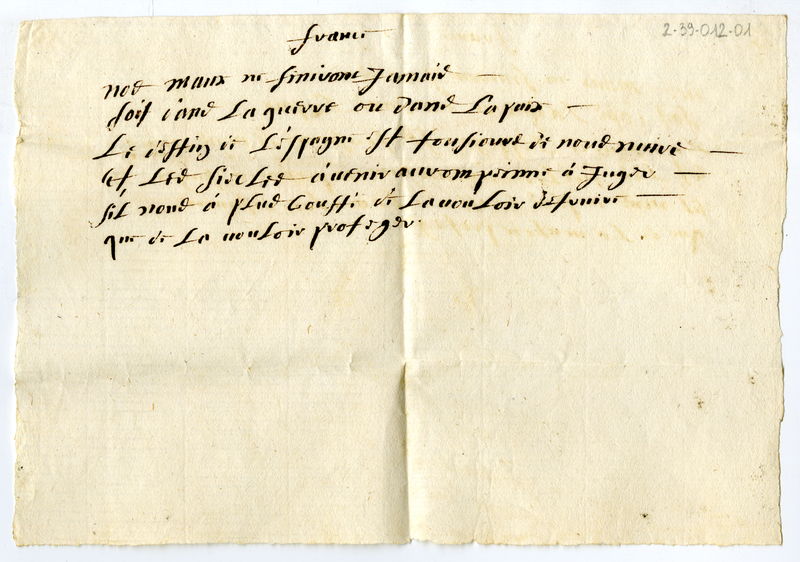 france
2-39-012-01
nos maux ne finiront Jamais
soit dans La guerre ou dans La paix
Le destin de L'espagne est tousiours de nous nuire
Et Les siecles à venir auront peinne à Juger
sil nous à plus Couste de La vouloir destruire
que de La vouloir proteger